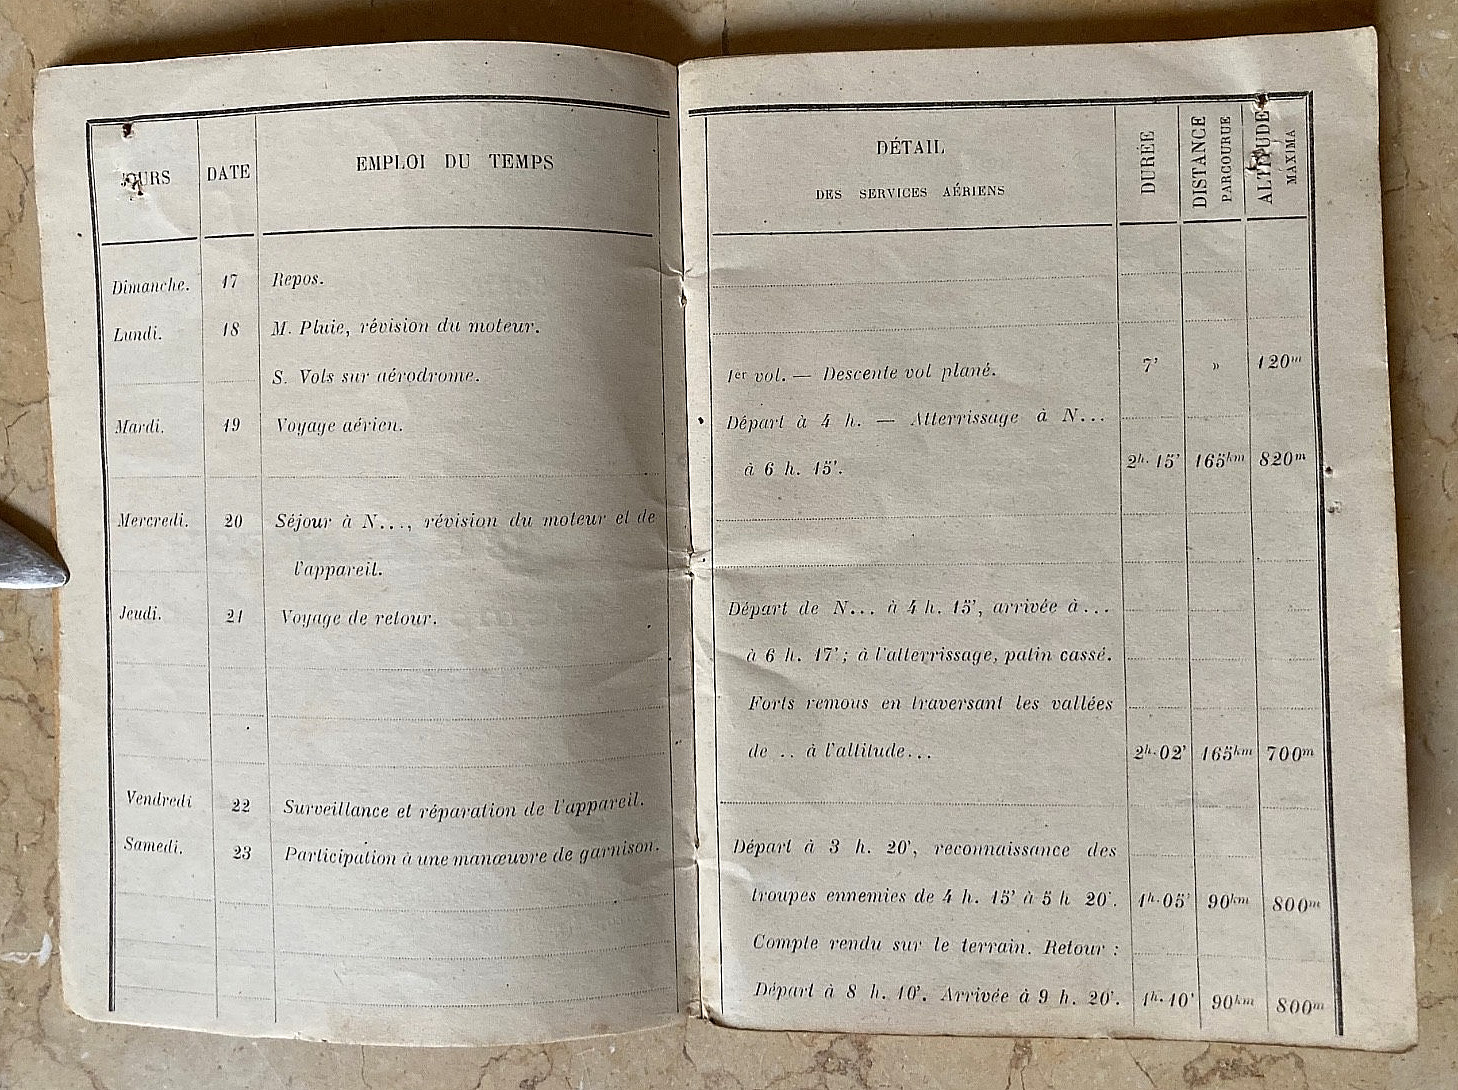 JOURS DATE EMPLOI DU TEMPS
Dimanche. 17 Repos.
Lundi. 18 M. Pluie, révision du moteur.
S. Vols sur aérodrome.
Mardi. 19 Voyage aérien.
Mercredi. 20 Séjour à N..., révision du moteur et de
l'appareil.
Jeudi. 21 Voyage de retour.
Vendredi 22 Surveillance et réparation de l'appareil.
Samedi. 23 Participation à une manœuvre de garnison.
DÉTAIL
DES SERVICES AÉRIENS
DURÉE
DISTANCE
PARCOURUE
ALTITUDE
MAXIMA
1er vol. — Descente vol plané. 7' » 120m
Départ à 4 h. — Atterrissage à N...
à 6 h. 15'. 2h. 15' 165km 820m
Départ de N... à 4 h. 15', arrivée à...
à 6 h. 17'; à l'atterrissage, patin cassé.
Forts remous en traversant les vallées
de .. à l'altitude... 2h. 02' 165km 700m
Départ à 3 h. 20', reconnaissance des
troupes ennemies de 4 h. 15' à 5 h 20'. 1h. 05' 90km 800m
Compte rendu sur le terrain. Retour :
Départ à 8 h. 10'. Arrivée à 9 h. 20'. 1h. 10' 90km 800m